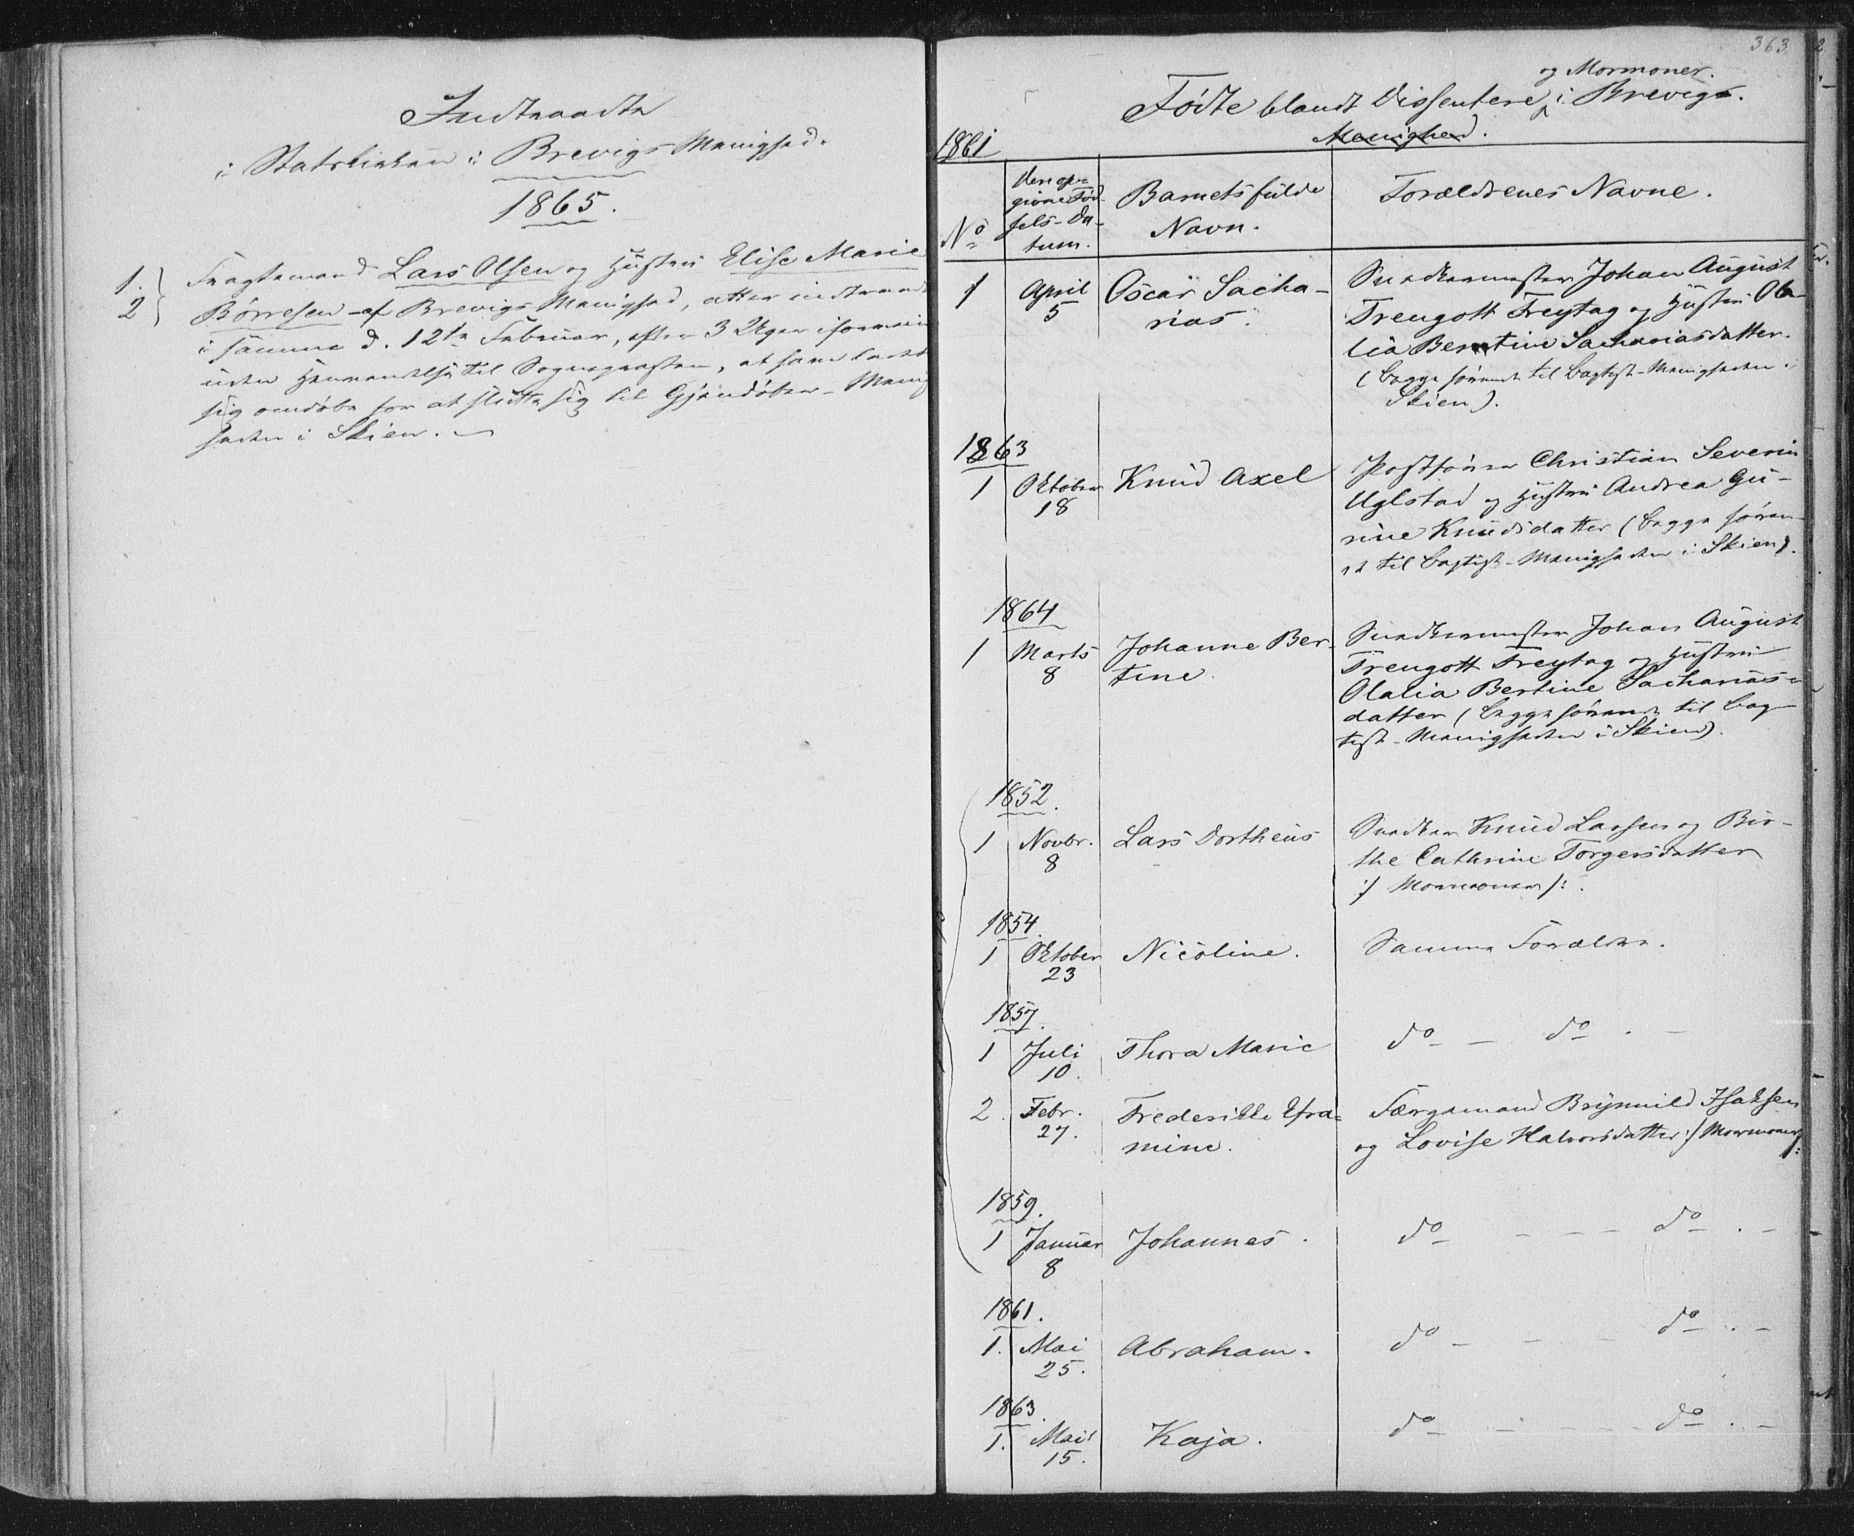 Indtraadte
i Statskirken i Brevigs Menighed.
1865.
1. Fragtemand Lars Olsen og Hustru Elise Marie
2 Børresen af Brevigs Menighed, atter indtraadt
i samme d. 12te Februar, efter 3 Uger iforveien
uden Henvendelse til Sognepræsten, at have ladet
sig omdøbe for at slutte sig til Gjendøber-Menig
heden i Skien.
363.
og Mormoner.
Fødte blandt Dissentere i Brevig.
Menighed.
1861
No
Den op-
givne Fød-
sels-Da-
tum.
Barnets fulde
Navn.
Forældrenes Navne.
1 April 5 Oscar Sacha-
rias.
Snedkermester Johan August
Trengott Freytag og Hustru Ola-
lia Berntine Sachariasdatter.
(begge hørende til Baptist-Menigheden i
Skien).
1863
1 Oktober 18 Knud Axel
Postfører Christian Severin
Uglstad og Hustru Andrea Gu-
rine Knudsdatter (begge høren-
de til Baptist-Menigheden i Skien).
1864
1 Marts 8 Johanne Ber-
tine.
Snedkermester Johan August
Trengott Freytag og Hustru
Olalia Bertine Sacharias-
datter (begge hørende til Bap-
tist-Menigheden i Skien).
1852.
1 Novbr. 8 Lars Dortheus
Snedker Knud Larsen og Bir-
the Cathrine Torgersdatter
:/ Mormoner /:.
1854.
1 Oktober 23 Nicoline.
Samme Forældre.
1857.
1 Juli 10. Thora Marie
do - do . -
2. Febr. 27. Frederikke Efra-
mine.
Færgemand Brynnild Isaksen
og Lovise Halvorsdatter :/ Mormoner /:
1859.
1 Januar 8 Johannes.
do - - - do . -
1861.
1. Mai 25. Abraham.
do - - - do . -
1863.
1. Mai 15. Kaja.
do - - - do . -